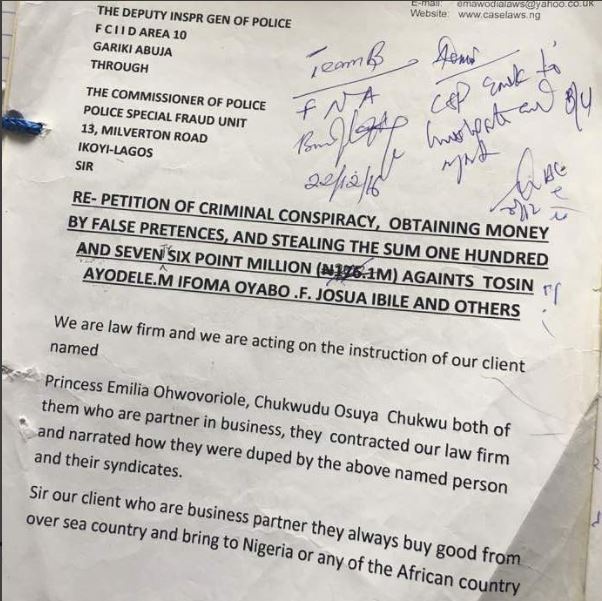 E-mail: emawodialaws@yahoo.co.uk
Website: www.caselaws.ng
THE DEPUTY INSPR GEN OF POLICE
F C I I D AREA 10
GARIKI ABUJA
THROUGH
THE COMMISSIONER OF POLICE
POLICE SPECIAL FRAUD UNIT
13, MILVERTON ROAD
IKOYI-LAGOS
SIR
Team B
FNA
22/12/16
RE- PETITION OF CRIMINAL CONSPIRACY, OBTAINING MONEY
BY FALSE PRETENCES, AND STEALING THE SUM ONE HUNDRED
AND SEVEN SIX POINT MILLION (₦176.1M) AGAINTS TOSIN
AYODELE.M IFOMA OYABO .F. JOSUA IBILE AND OTHERS
We are law firm and we are acting on the instruction of our client
named
Princess Emilia Ohwovoriole, Chukwudu Osuya Chukwu both of
them who are partner in business, they contracted our law firm
and narrated how they were duped by the above named person
and their syndicates.
Sir our client who are business partner they always buy good from
over sea country and bring to Nigeria or any of the African country